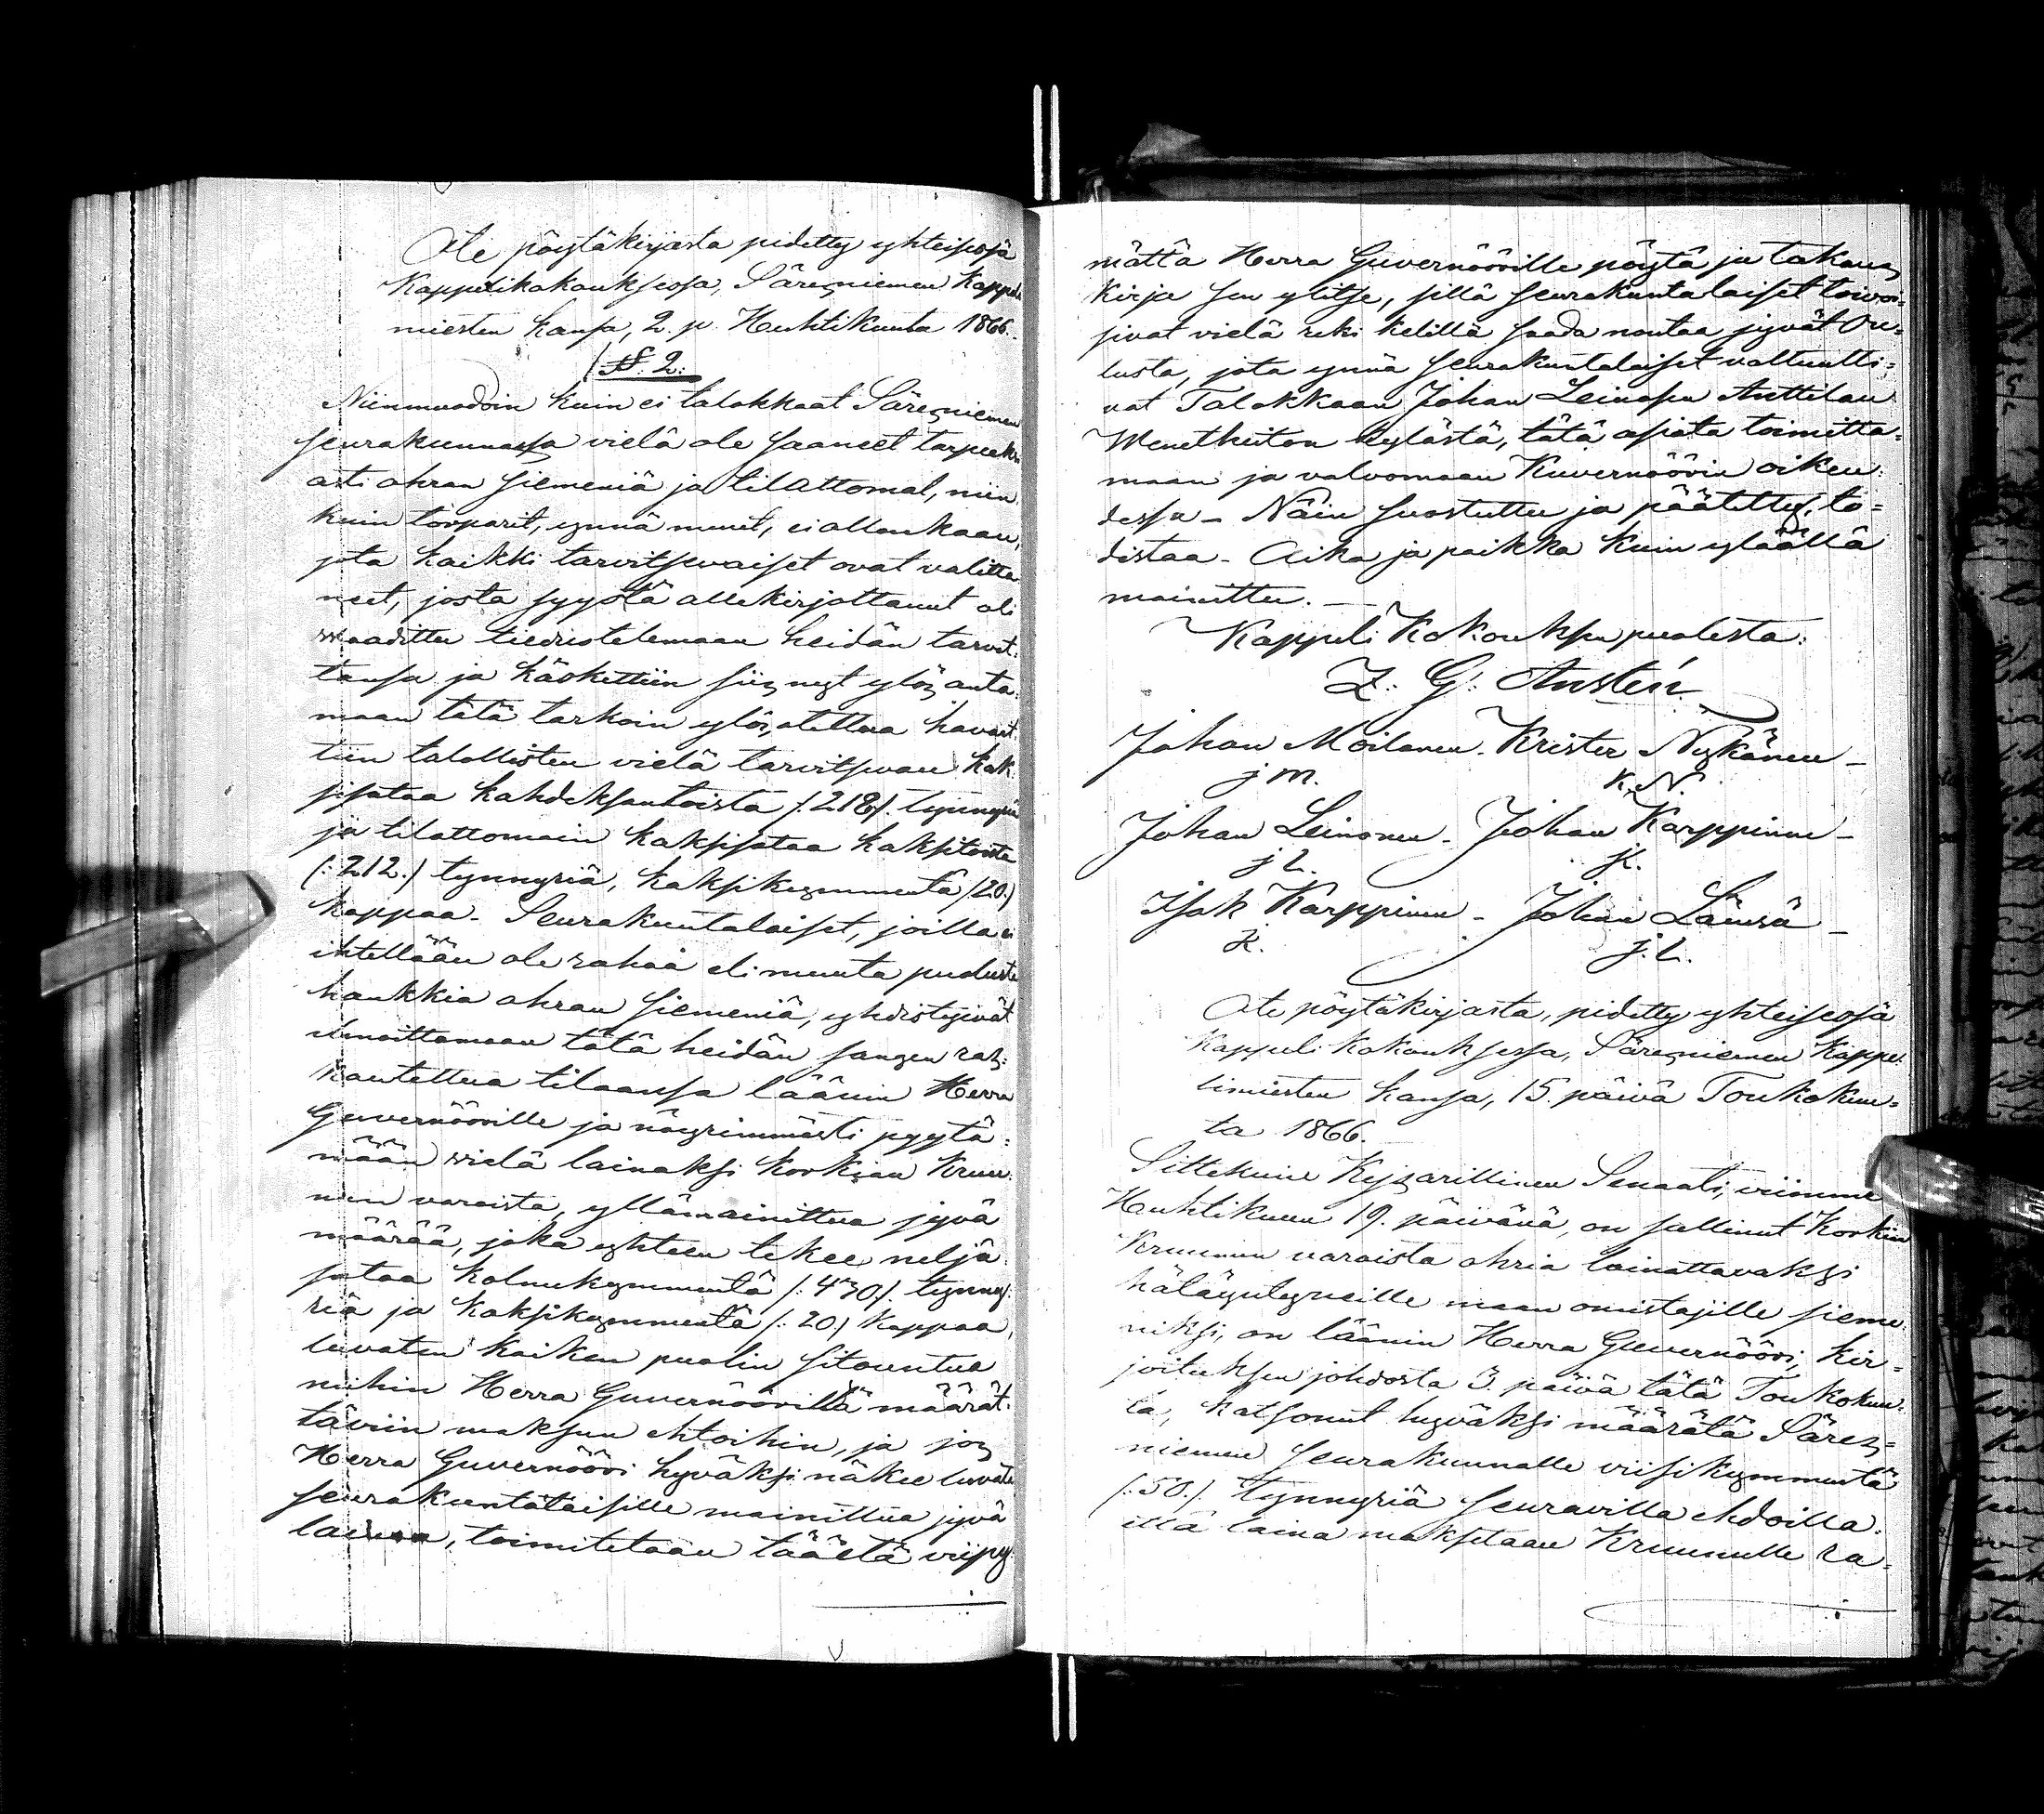 Ote pöytäkirjasta pidetty yhteisesä
Kappelikokouksesa, Säresniemen Kappeli
miesten kansa, 2. p. Huhtikuuta 1866.
§. 2.
Niinmuodoin kuin ei talokkaat Säresniemen
seurakunnassa vielä ole saaneet tarpeek
asti ohran siemeniä ja tilattomat, niin
kuin torparit, ynnä muut, ei ollenkaan,
jota kaikki tarvitsevaiset ovat valitta
neet, josta syystä allekirjottanut oli
waadittu tiedustelemaan heidän tarvet:
tansa ja käskettiin siis nyt ylös anta:
maan tätä tarkoin ylösotettua havait
tiin talollisten vielä tarvitsevan kak
sisataa kahdeksantoista /: 218 /. tynnyriä
ja tilattomain kaksisataa kaksitoista
(: 212.) tynnyriä, kaksikymmentä /20./
kappaa. Seurakuntalaiset, joilla ei
ihtellään ole rahaa eli muuta puolusta
hankkia ohran siemeniä, yhdistyivät
ilmoittamaan tätä heidän sangen ras:
kautettua tilaansa läänin Herra
Guvernöörille ja nöyrimmästi pyytä:
mään vielä lainaksi korkian Kruu:
nun varoista, yllämainittua jyvä
määrää, joka yhteen tekee neljä
sataa kolmekymmentä /: 430 /. tynny:
riä ja kaksikymmentä /: 20 / kappaa,
luvaten kaiken puolin sitountua
niihin Herra Guvernöörillä määrät:
täviin maksun ehtoihin, ja jos
Herra Guvernööri hyväksi näkee luvata
seurakuntalaisille mainittua jyvä
lainaa, toimitetaan täältä viipy
mättä Herra Guvernöörille pöytä ja takaus
kirja sen ylitse, sillä seurakuntalaiset toivoi:
sivat vielä reki kelillä saada noutaa jyvät Ou:
lusta, jota ynnä seurakuntalaiset valtuutti:
vat Talokkaan Johan Leinosen Anttilan
Wenetheiton kylästä, tätä asiata toimitta:
maan ja valvomaan Kuvernöörin oikeu:
dessa — Näin suostuttu ja päätetty, to:
distaa. Aika ja paikka kuin ylääällä
mainittu. —
Kappeli Kokouksen puolesta:
Z: G: Anstén
Johan Moilanen. Krister Nykänen —
j m. K. N.
Johan Leinonen. Johan Karppinen —
j L. jK.
Isak Karppinen — Johan Lämsä —
K. j. L.
Ote pöytäkirjasta, pidetty yhteisesä
Kappeli Kokouksessa, Säresniemen Kappe:
limiesten kansa, 15. päivä Toukokuu:
ta 1866.
Sittekuin Kejsarillinen Senaati, viimme
Huhtikuun 19. päivänä, on sallinut Korkian
Kruunun varoista ohria lainattavaksi
hätäyntyneille maan omistajille sieme:
niksi, on läänin Herra Guvernööri, kir:
joituksen johdosta 3. päivä tätä Toukokuu:
ta, katsonut hyväksi määrätä Säres:
niemen seurakunnalle viisikymmentä
/: 50. /. tynnyriä seuravilla ehdoilla:
että laina maksetaan Kruunulle ra: